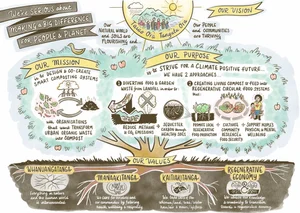 We're SERIOUS about
MAKING A BIG DIFFERENCE
FOR PEOPLE & PLANET
Our
NATURAL
WORLD and
SOILS are
FLOURISHING and
OUR VISION
Our PEOPLE
and
COMMUNITIES
are THRIVING
OUR MISSION
is to DESIGN & CO-CREATE
SMART COMPOSTING SYSTEMS
with ORGANISATIONS
that want TRANSFORM
URBAN ORGANIC WASTE
into COMPOST
OUR PURPOSE
is to STRIVE FOR A CLIMATE POSITIVE FUTURE
WE HAVE 2 APPROACHES
1 DIVERTING FOOD & GARDEN
WASTE FROM LANDFILL in order to:
REDUCE METHANE
CO2 EMISSIONS
SEQUESTER
CARBON through
HEALTHY SOILS
2 CREATING LIVING COMPOST to FEED our
REGENERATIVE CIRCULAR FOOD SYSTEM
that:
PROMOTE LOCAL
FOOD PRODUCTION
CULTIVATES
FOOD
RESILIENCE &
SECURITY
SUPPORT PEOPLES
PHYSICAL & MENTAL
WELLBEING
OUR VALUES
WHANAUNGATANGA
Everything in nature
and the human world
is interconnected
MANAAKITANGA
KAITIAKITANGA
REGENERATIVE
ECONOMY